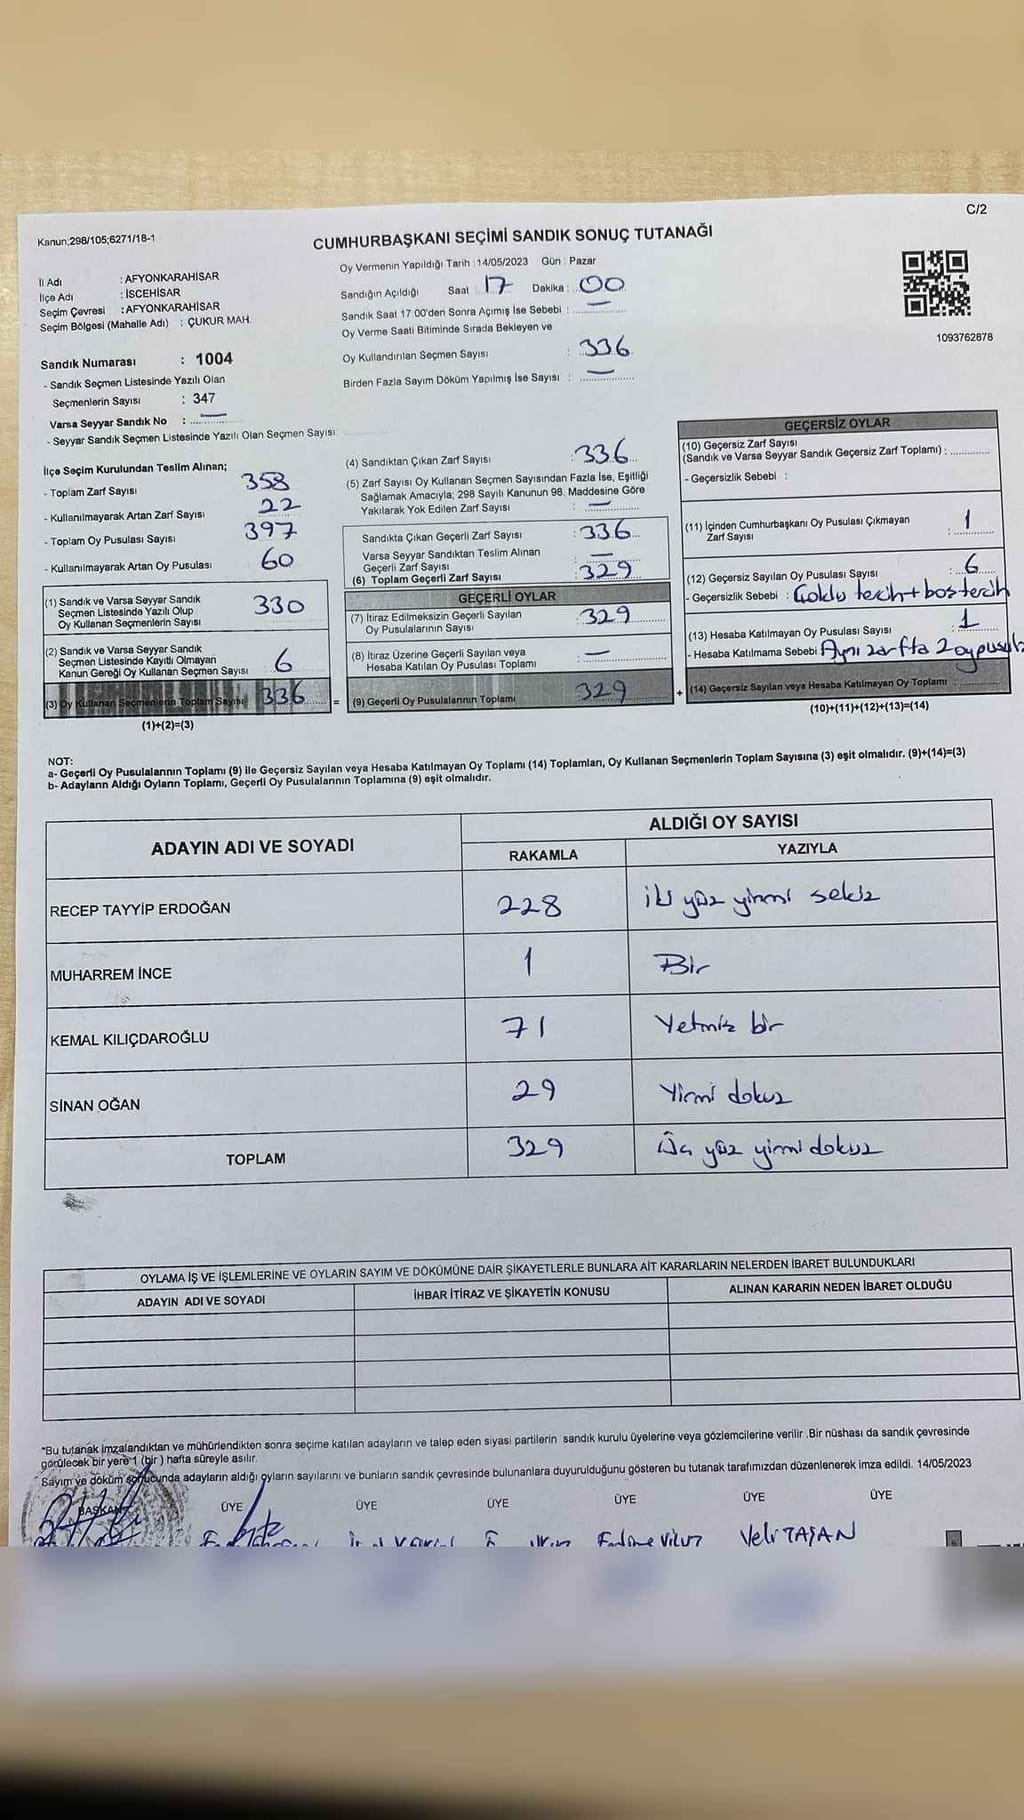 C/2
Kanun;298/105;6271/18-1
CUMHURBAŞKANI SEÇİMİ SANDIK SONUÇ TUTANAĞI
İl Adı : AFYONKARAHİSAR
İlçe Adı : İSCEHİSAR
Seçim Çevresi : AFYONKARAHİSAR
Seçim Bölgesi (Mahalle Adı) : ÇUKUR MAH.
Oy Vermenin Yapıldığı Tarih : 14/05/2023 Gün : Pazar
Sandığın Açıldığı Saat : 17 Dakika : 00
Sandık Saat 17:00'den Sonra Açımış İse Sebebi : —
Oy Verme Saati Bitiminde Sırada Bekleyen ve
Oy Kullandırılan Seçmen Sayısı : 336
Birden Fazla Sayım Döküm Yapılmış İse Sayısı : —
1093762878
Sandık Numarası : 1004
- Sandık Seçmen Listesinde Yazılı Olan
Seçmenlerin Sayısı : 347
Varsa Seyyar Sandık No : —
- Seyyar Sandık Seçmen Listesinde Yazılı Olan Seçmen Sayısı:
İlçe Seçim Kurulundan Teslim Alınan;
- Toplam Zarf Sayısı 358
- Kullanılmayarak Artan Zarf Sayısı 22
- Toplam Oy Pusulası Sayısı 397
- Kullanılmayarak Artan Oy Pusulası 60
(1) Sandık ve Varsa Seyyar Sandık
Seçmen Listesinde Yazılı Olup
Oy Kullanan Seçmenlerin Sayısı 330
(2) Sandık ve Varsa Seyyar Sandık
Seçmen Listesinde Kayıtlı Olmayan
Kanun Gereği Oy Kullanan Seçmen Sayısı 6
(3) Oy Kullanan Seçmenlerin Toplam Sayısı 336 =
(1)+(2)=(3)
(4) Sandıktan Çıkan Zarf Sayısı : 336
(5) Zarf Sayısı Oy Kullanan Seçmen Sayısından Fazla İse, Eşitliği
Sağlamak Amacıyla; 298 Sayılı Kanunun 98. Maddesine Göre
Yakılarak Yok Edilen Zarf Sayısı : —
Sandıkta Çıkan Geçerli Zarf Sayısı : 336
Varsa Seyyar Sandıktan Teslim Alınan
Geçerli Zarf Sayısı : —
(6) Toplam Geçerli Zarf Sayısı : 329
GEÇERLİ OYLAR
(7) İtiraz Edilmeksizin Geçerli Sayılan
Oy Pusulalarının Sayısı : 329
(8) İtiraz Üzerine Geçerli Sayılan veya
Hesaba Katılan Oy Pusulası Toplamı : —
(9) Geçerli Oy Pusulalarının Toplamı 329 +
GEÇERSİZ OYLAR
(10) Geçersiz Zarf Sayısı
(Sandık ve Varsa Seyyar Sandık Geçersiz Zarf Toplamı) :
- Geçersizlik Sebebi :
(11) İçinden Cumhurbaşkanı Oy Pusulası Çıkmayan
Zarf Sayısı : 1
(12) Geçersiz Sayılan Oy Pusulası Sayısı : 6
- Geçersizlik Sebebi : Çoklu tercih + bos tercih
(13) Hesaba Katılmayan Oy Pusulası Sayısı : 1
- Hesaba Katılmama Sebebi Aynı zarfta 2 oypusula
(14) Geçersiz Sayılan veya Hesaba Katılmayan Oy Toplamı
(10)+(11)+(12)+(13)=(14)
NOT:
a- Geçerli Oy Pusulalarının Toplamı (9) ile Geçersiz Sayılan veya Hesaba Katılmayan Oy Toplamı (14) Toplamları, Oy Kullanan Seçmenlerin Toplam Sayısına (3) eşit olmalıdır. (9)+(14)=(3)
b- Adayların Aldığı Oyların Toplamı, Geçerli Oy Pusulalarının Toplamına (9) eşit olmalıdır.
ADAYIN ADI VE SOYADI
ALDIĞI OY SAYISI
RAKAMLA YAZIYLA
RECEP TAYYİP ERDOĞAN 228 iki yüz yirmi sekiz
MUHARREM İNCE 1 Bir
KEMAL KILIÇDAROĞLU 71 Yetmiş bir
SİNAN OĞAN 29 Yirmi dokuz
TOPLAM 329 Üç yüz yirmi dokuz
OYLAMA İŞ VE İŞLEMLERİNE VE OYLARIN SAYIM VE DÖKÜMÜNE DAİR ŞİKAYETLERLE BUNLARA AİT KARARLARIN NELERDEN İBARET BULUNDUKLARI
ADAYIN ADI VE SOYADI İHBAR İTİRAZ VE ŞİKAYETİN KONUSU ALINAN KARARIN NEDEN İBARET OLDUĞU
*Bu tutanak imzalandıktan ve mühürlendikten sonra seçime katılan adayların ve talep eden siyasi partilerin sandık kurulu üyelerine veya gözlemcilerine verilir .Bir nüshası da sandık çevresinde
görülecek bir yere 1 (bir ) hafta süreyle asılır.
Sayım ve döküm sonucunda adayların aldığı oyların sayılarını ve bunların sandık çevresinde bulunanlara duyurulduğunu gösteren bu tutanak tarafımızdan düzenlenerek imza edildi. 14/05/2023
BAŞKAN ÜYE ÜYE ÜYE ÜYE ÜYE ÜYE
Veli TAŞAN